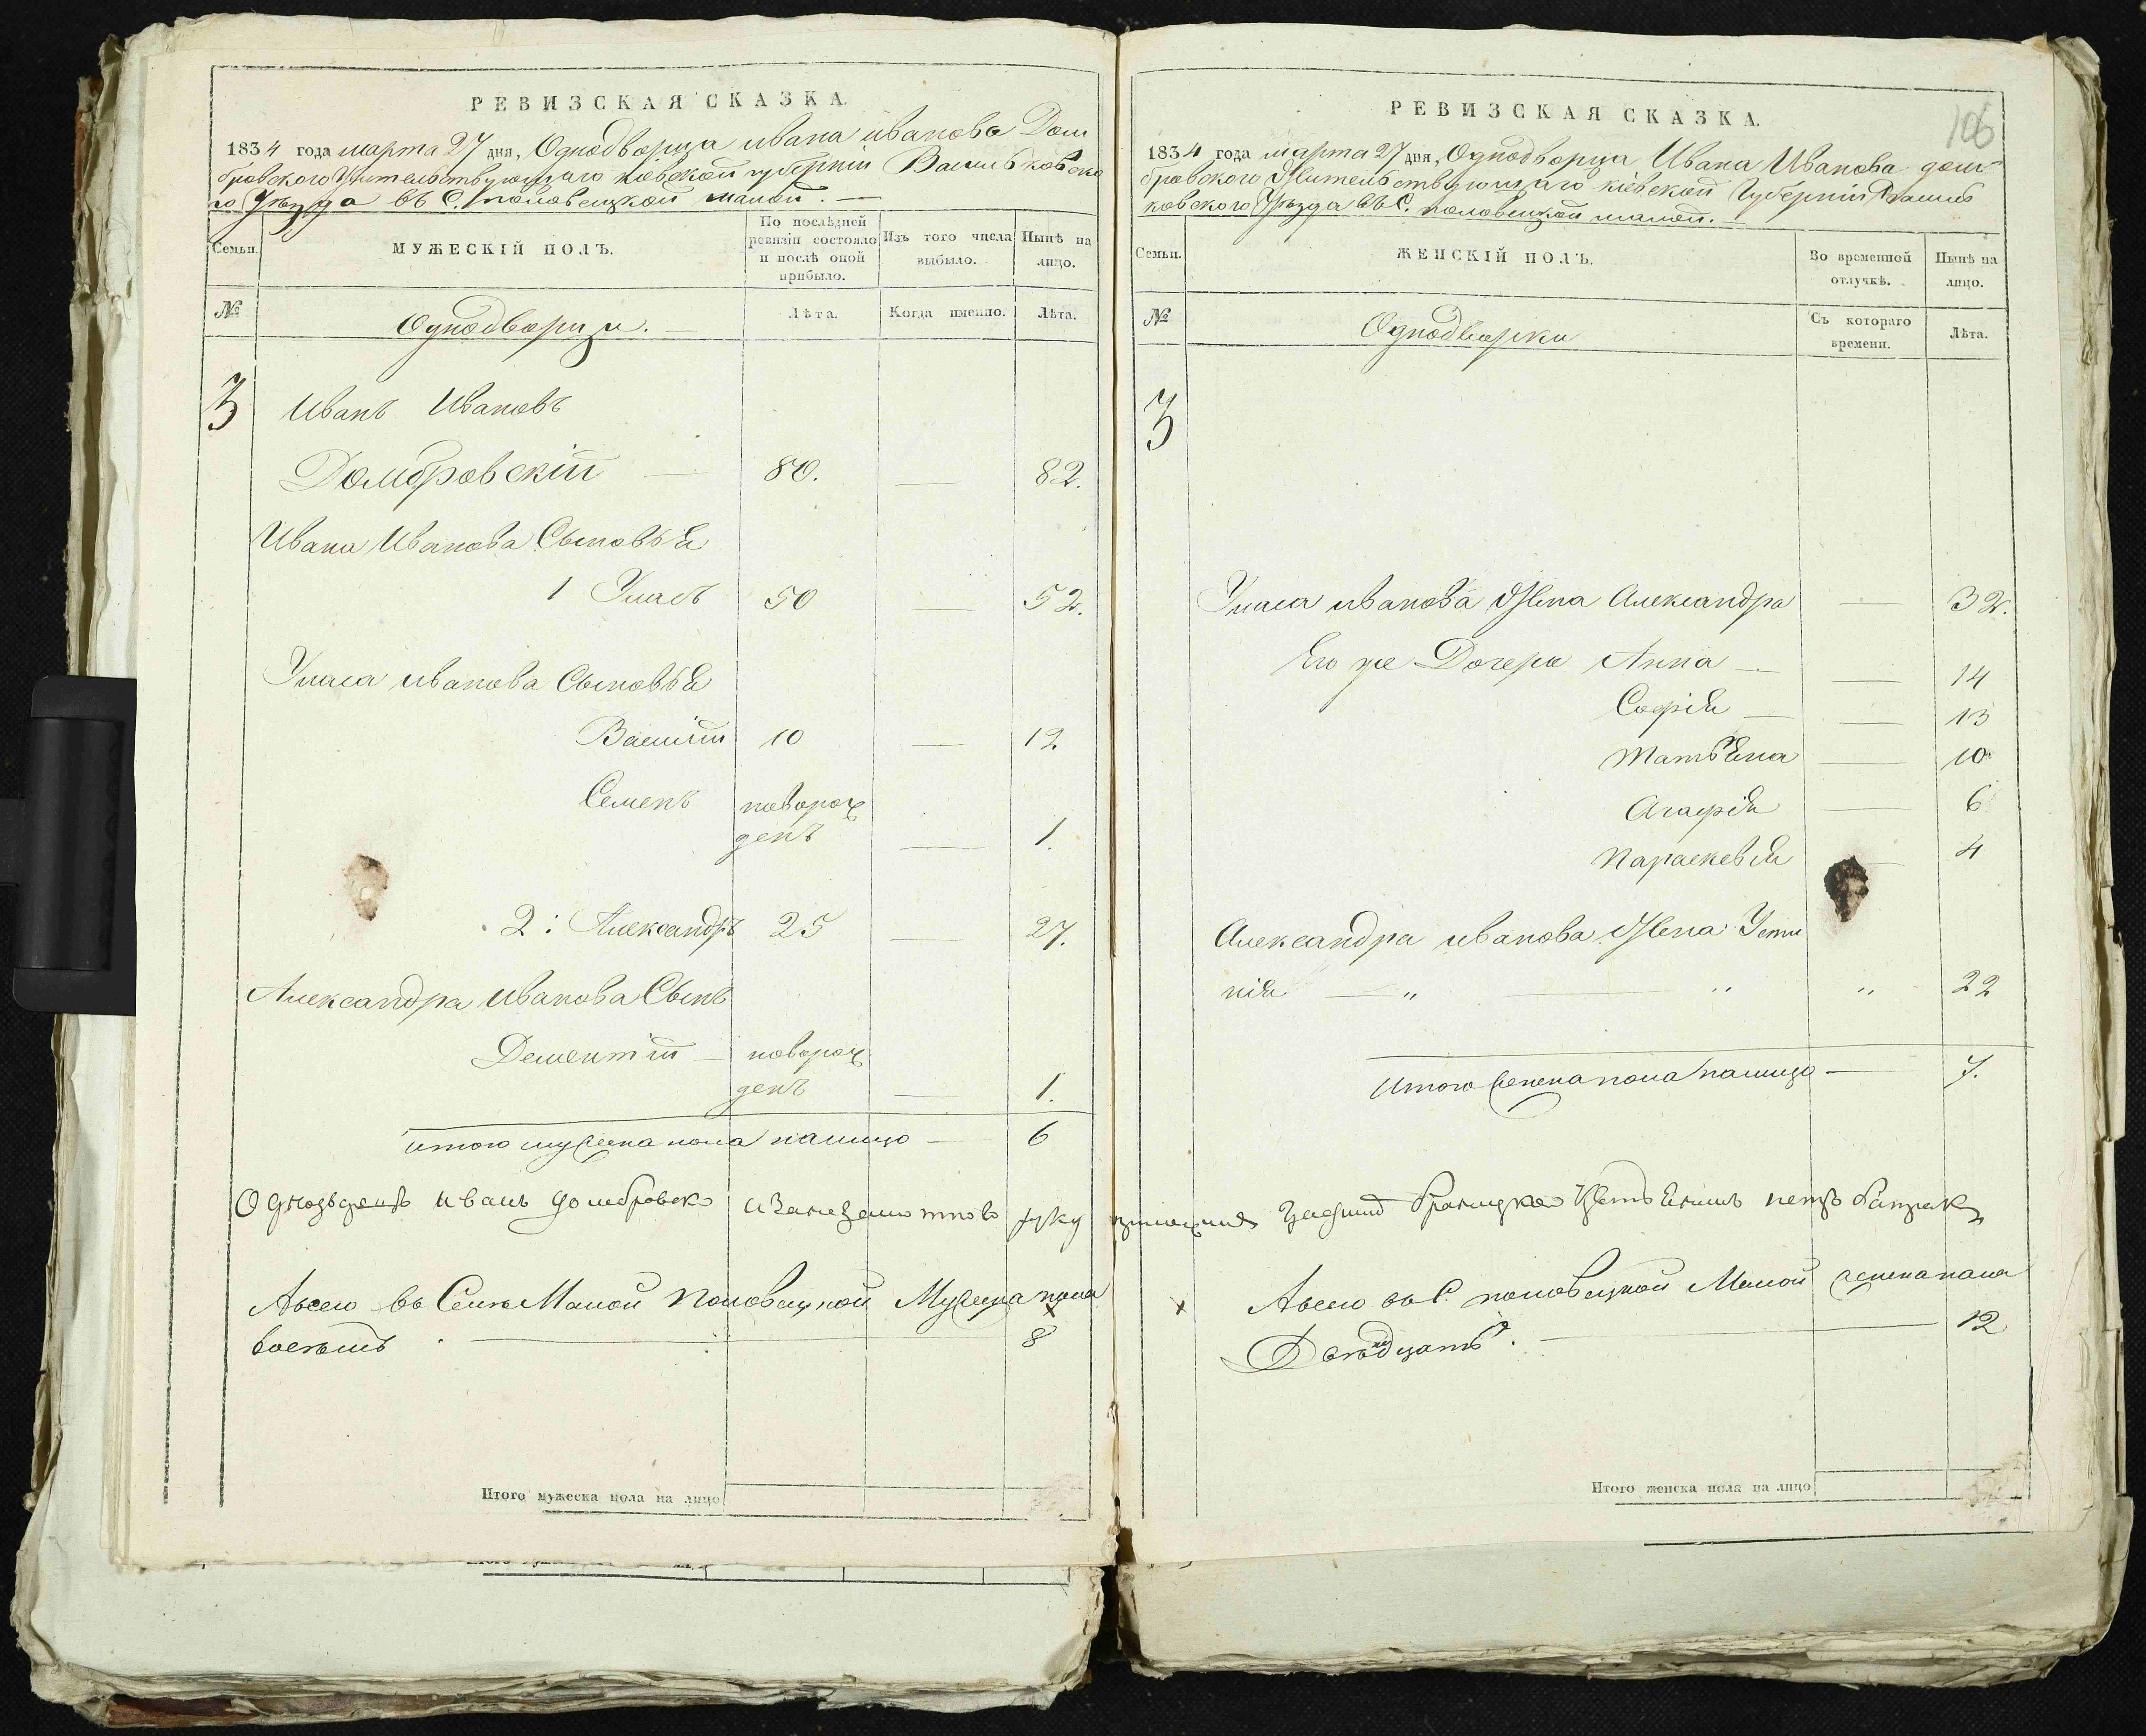 РЕВИЗСКАЯ СКАЗКА.
1834 года марта 27 дня, Однодворца ивана иванова Дом
бровского Жительствующаго Кіевской губерніи Васильковско
го Уѣзда въ С. половецкой малой. —
Семьи.
МУЖЕСКІЙ ПОЛЪ.
По послѣдней ревизіи состояло и послѣ оной прибыло.
Изъ того числа выбыло.
Нынѣ на лицо.
№
Однодворцы. —
Лѣта.
Когда именно.
Лѣта.
3 Иванъ Ивановъ
Домбровскій — 80. — 82.
Ивана Иванова Сыновья
1 Уласъ 50 52.
Уласа иванова Сыновья
Василій 10 — 12
Семенъ новорож
денъ — 1.
2: Александръ 25 — 27.
Александра иванова Сынъ
Дементій — новорож
денъ — 1.
итого мужеска пола налицо — 6
Однодворецъ иванъ домбровско руку
Авсего въ Селе Малой Половецкой Мужеска пола
восемъ . — 8
Итого мужеска пола на лицо
РЕВИЗСКАЯ СКАЗКА.
106
1834 года марта 27 дня, Однодворца Ивана Иванова дом
бровского Жительствующаго кіевской Губерніи Василь
ковского Уѣзда въ С. половецкой малой. —
Семьи.
ЖЕНСКІЙ ПОЛЪ.
Во временной отлучкѣ.
Нынѣ на лицо.
№
Однодворки
Съ котораго времени.
Лѣта.
3
Уласа иванова Жена Александра — 32.
Его же Дочери Анна — — 14
Софія — — 13
Татьяна — 10
Агафія — 6
Параскевія — 4
Александра иванова Жена Усти
нія — " — " " 22
Итого женска пола налицо — 7.
x Авсего въ С. половецкой Малой женска пола
Двенадцать . — 12
Итого женска пола на лицо